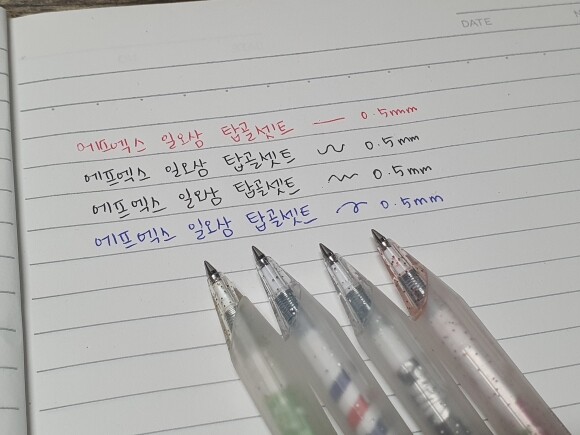 DATE
에프엑스 일오삼 탑골셋트 — 0.5mm
에프엑스 일오삼 탑골셋트 ~ 0.5mm
에프엑스 일오삼 탑골셋트 ~ 0.5mm
에프엑스 일오삼 탑골셋트 ~ 0.5mm